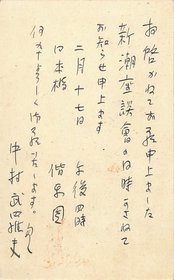 拝啓かねてお話申上ました
新潮座談會の日時きまりて
お知らせ申上ます
二月十七日 午後四時
日本橋 偕楽園
何卒よろしく いたします。
中村武羅夫